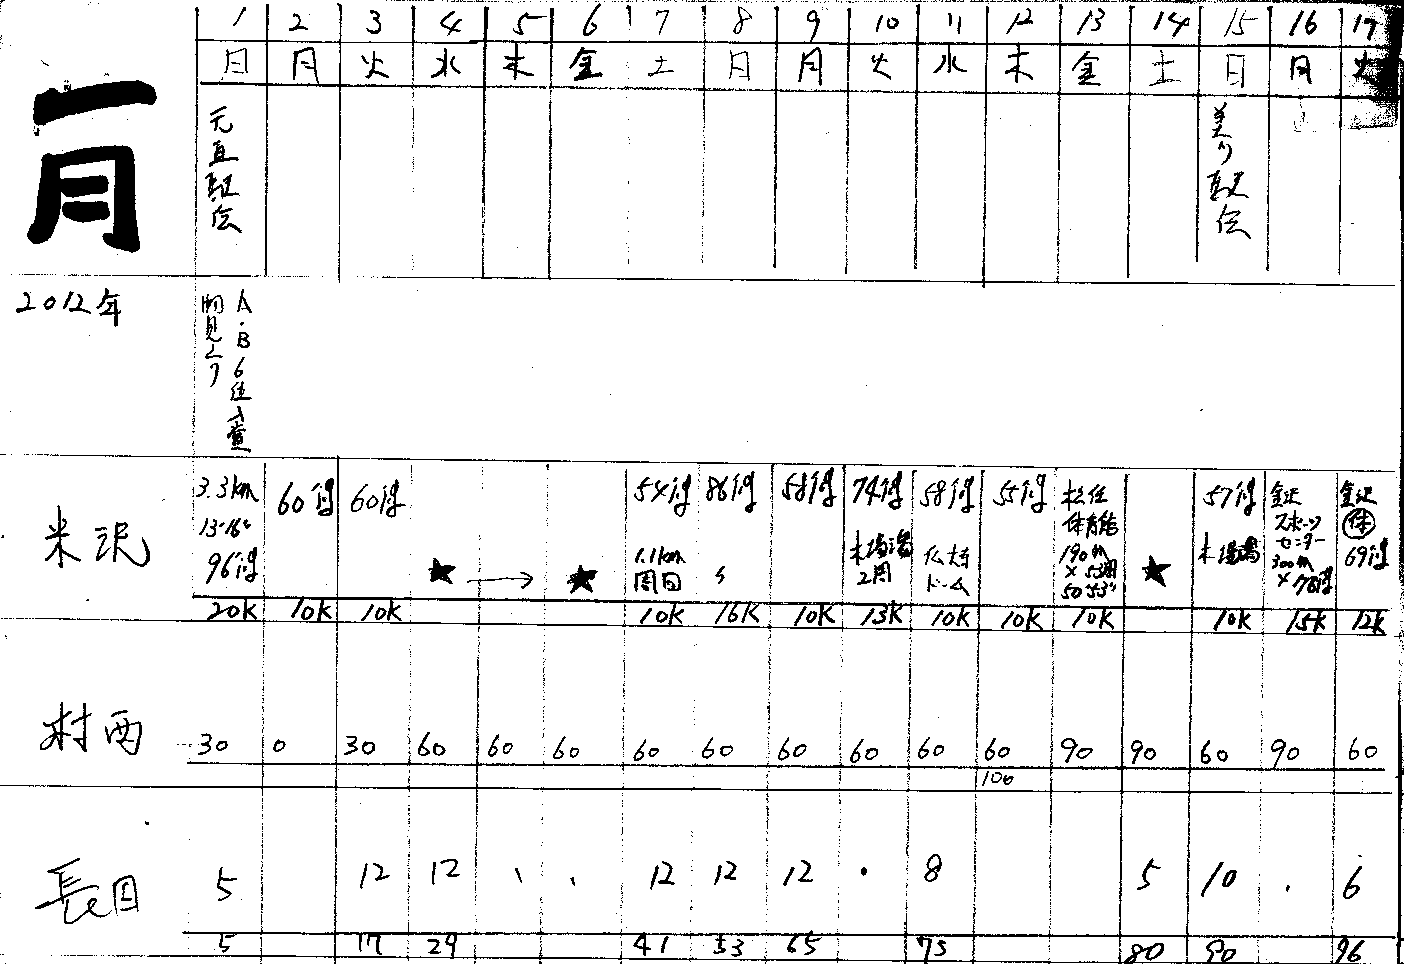 一月
1 2 3 4 5 6 7 8 9 10 11 12 13 14 15 16 17
日 月 火 水 木 金 土 日 月 火 水 木 金 土 日 月 火
元旦駅伝
美川駅伝
2012年
A・B6位入賞
米沢
3.3km 60分 60分 54分 86分 58分 74分 58分 55分 松任 57分 金沢 金沢
体育館 スポーツ 体
13-16℃ センター
96分 ★ → ★ 1.1km 木場潟 ドーム 190m ★ 木場潟 300m 69分
周回 2周
20K 10K 10K 10K 16K 10K 13K 10K 10K 10K 10K 15K 12K
村西
30 0 30 60 60 60 60 60 60 60 60 60 90 90 60 90 60
100
長田
5 12 12 12 12 12 8 5 10 6
5 17 29 41 53 65 73 80 90 96